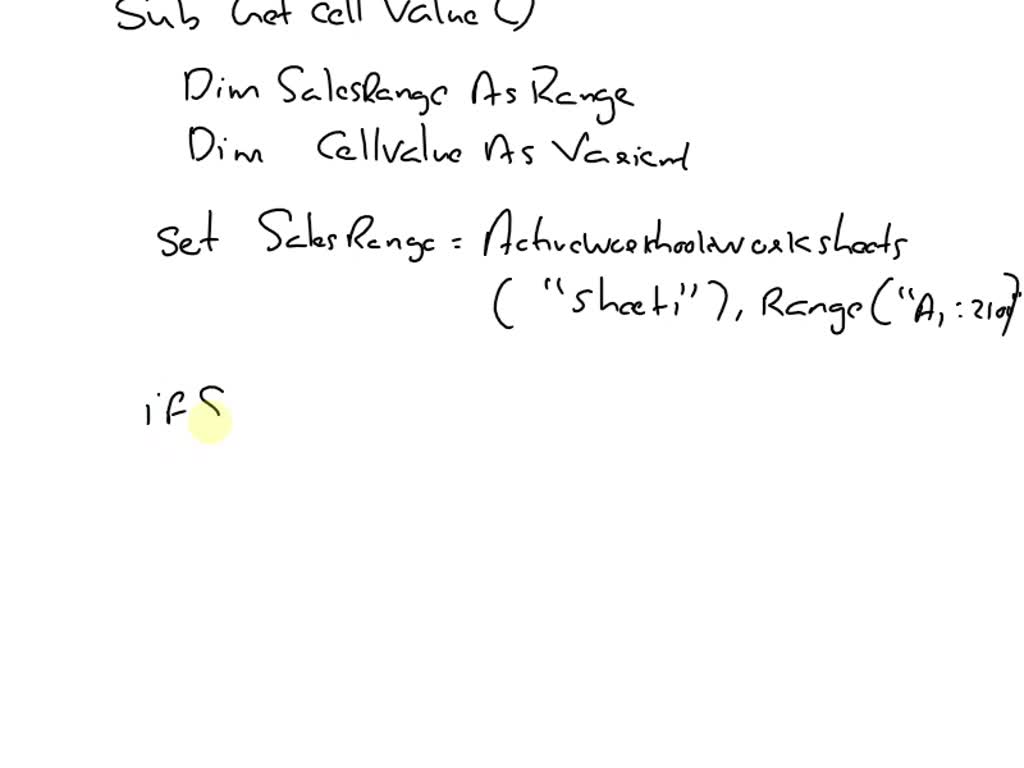 Sub Get Cell Value ()
Dim SalesRange As Range
Dim Cellvalue As Variant
Set SalesRange = Activeworkbook.worksheets
("sheet1"), Range("A1:Z100")
if S